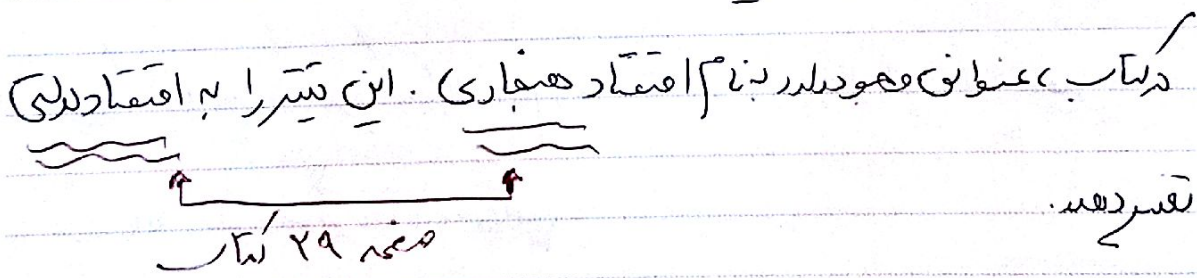 در کتاب، عنوانی وجود دارد به نام اقتصاد هنجاری. این تیتر را به اقتصاد دولتی
تغییر دهید.
صفحه ۲۹ کتاب